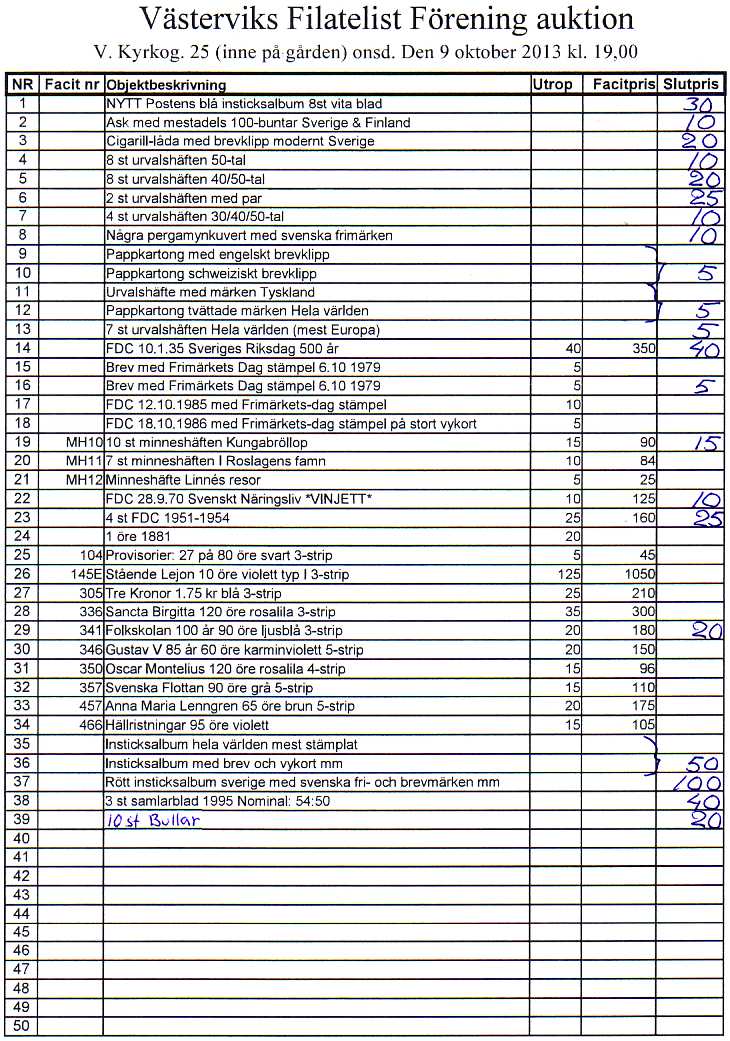 Västerviks Filatelist Förening auktion
V. Kyrkog. 25 (inne på gården) onsd. Den 9 oktober 2013 kl. 19,00
NR Facit nr Objektbeskrivning Utrop Facitpris Slutpris
1 NYTT Postens blå insticksalbum 8st vita blad 30
2 Ask med mestadels 100-buntar Sverige & Finland 10
3 Cigarill-låda med brevklipp modernt Sverige 20
4 8 st urvalshäften 50-tal 10
5 8 st urvalshäften 40/50-tal 20
6 2 st urvalshäften med par 25
7 4 st urvalshäften 30/40/50-tal 10
8 Några pergamynkuvert med svenska frimärken 10
9 Pappkartong med engelskt brevklipp
10 Pappkartong schweiziskt brevklipp 5
11 Urvalshäfte med märken Tyskland
12 Pappkartong tvättade märken Hela världen 5
13 7 st urvalshäften Hela världen (mest Europa) 5
14 FDC 10.1.35 Sveriges Riksdag 500 år 40 350 40
15 Brev med Frimärkets Dag stämpel 6.10 1979 5
16 Brev med Frimärkets Dag stämpel 6.10 1979 5 5
17 FDC 12.10.1985 med Frimärkets-dag stämpel 10
18 FDC 18.10.1986 med Frimärkets-dag stämpel på stort vykort 5
19 MH10 10 st minneshäften Kungabröllop 15 90 15
20 MH11 7 st minneshäften I Roslagens famn 10 84
21 MH12 Minneshäfte Linnés resor 5 25
22 FDC 28.9.70 Svenskt Näringsliv *VINJETT* 10 125 10
23 4 st FDC 1951-1954 25 160 25
24 1 öre 1881 20
25 104 Provisorier: 27 på 80 öre svart 3-strip 5 45
26 145E Stående Lejon 10 öre violett typ I 3-strip 125 1050
27 305 Tre Kronor 1.75 kr blå 3-strip 25 210
28 336 Sancta Birgitta 120 öre rosalila 3-strip 35 300
29 341 Folkskolan 100 år 90 öre ljusblå 3-strip 20 180 20
30 346 Gustav V 85 år 60 öre karminviolett 5-strip 20 150
31 350 Oscar Montelius 120 öre rosalila 4-strip 15 96
32 357 Svenska Flottan 90 öre grå 5-strip 15 110
33 457 Anna Maria Lenngren 65 öre brun 5-strip 20 175
34 466 Hällristningar 95 öre violett 15 105
35 Insticksalbum hela världen mest stämplat
36 Insticksalbum med brev och vykort mm 50
37 Rött insticksalbum sverige med svenska fri- och brevmärken mm 100
38 3 st samlarblad 1995 Nominal: 54:50 40
39 10 st Bullar 20
40
41
42
43
44
45
46
47
48
49
50